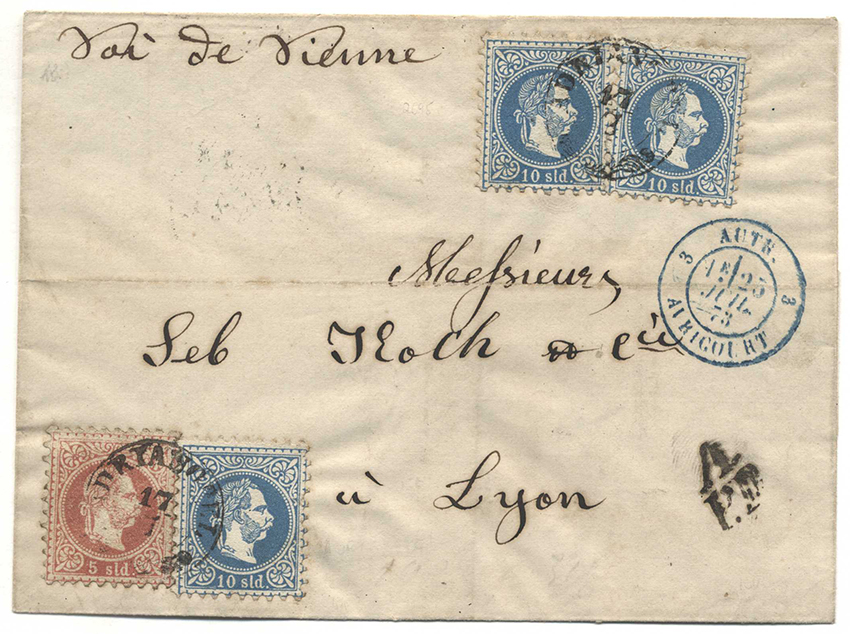 Voi de Vienne
10 sld.
10 sld.
17
3 AUTR. 3
25
JUIL
73
AVRICOURT
Messieurs
Seb Koch & Cie
à Lyon
A.
P.D
17
5 sld.
10 sld.